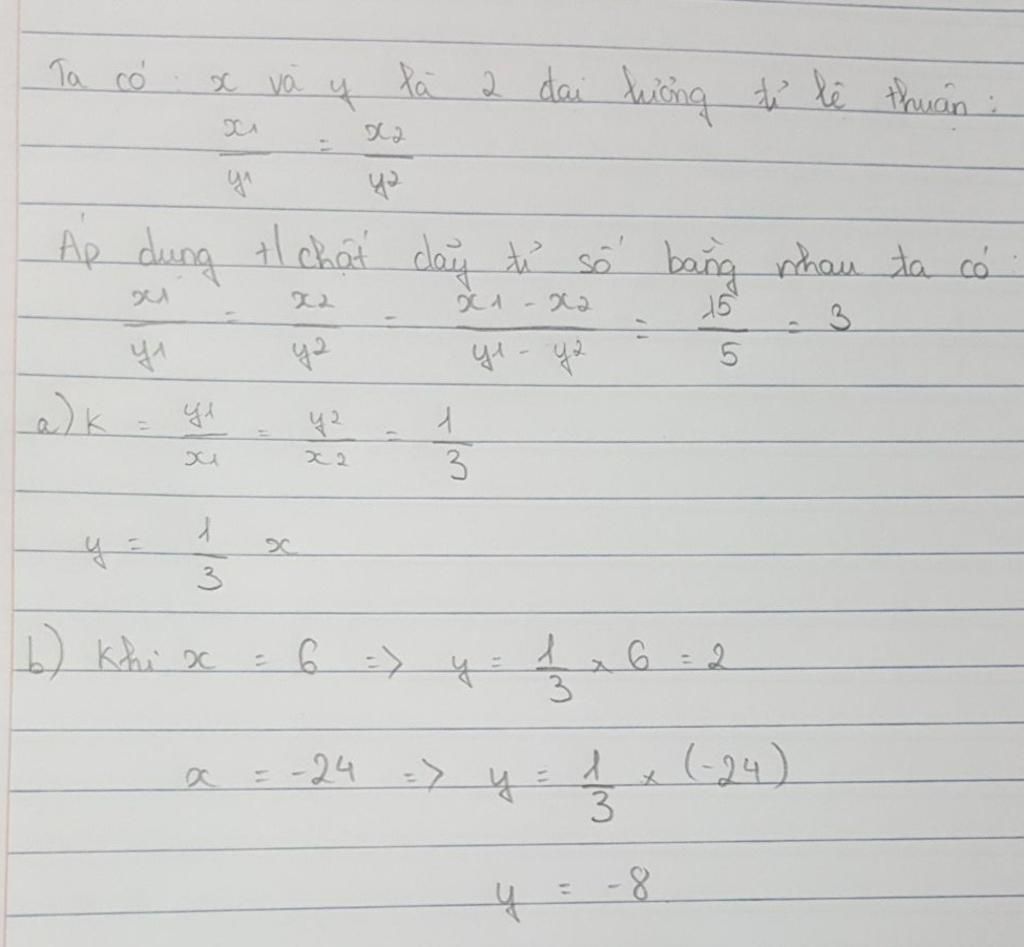 Ta có : x và y là 2 đại lượng tỉ lệ thuận :
x1/y1 = x2/y2
Áp dụng t/chất dãy tỉ số bằng nhau ta có :
x1/y1 = x2/y2 = (x1 - x2)/(y1 - y2) = 15/5 = 3
a) k = y1/x1 = y2/x2 = 1/3
y = 1/3 x
b) Khi x = 6 => y = 1/3 x 6 = 2
x = -24 => y = 1/3 x (-24)
y = -8